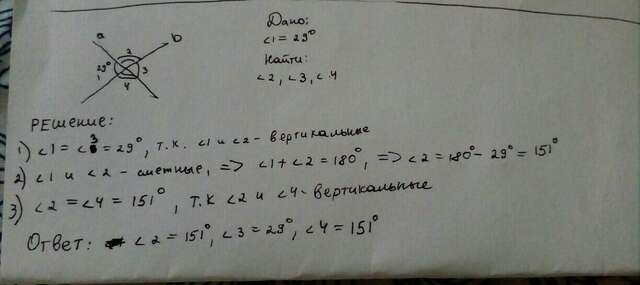 Дано:
a b
∠1 = 29°
2
Найти:
29° 3
1
∠2, ∠3, ∠4
4
РЕШЕНИЕ:
1) ∠1 = ∠3 = 29°, т.к. ∠1 и ∠2 - вертикальные
2) ∠1 и ∠2 - смежные, => ∠1 + ∠2 = 180°, => ∠2 = 180° - 29° = 151°
3) ∠2 = ∠4 = 151°, т.к ∠2 и ∠4 - вертикальные
Ответ: ∠2 = 151°, ∠3 = 29°, ∠4 = 151°